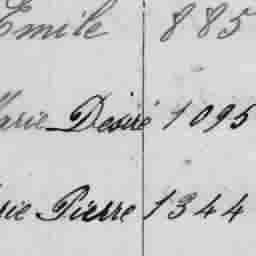 Emile 885
Marie Desiré 1095
rie Pierre 1344